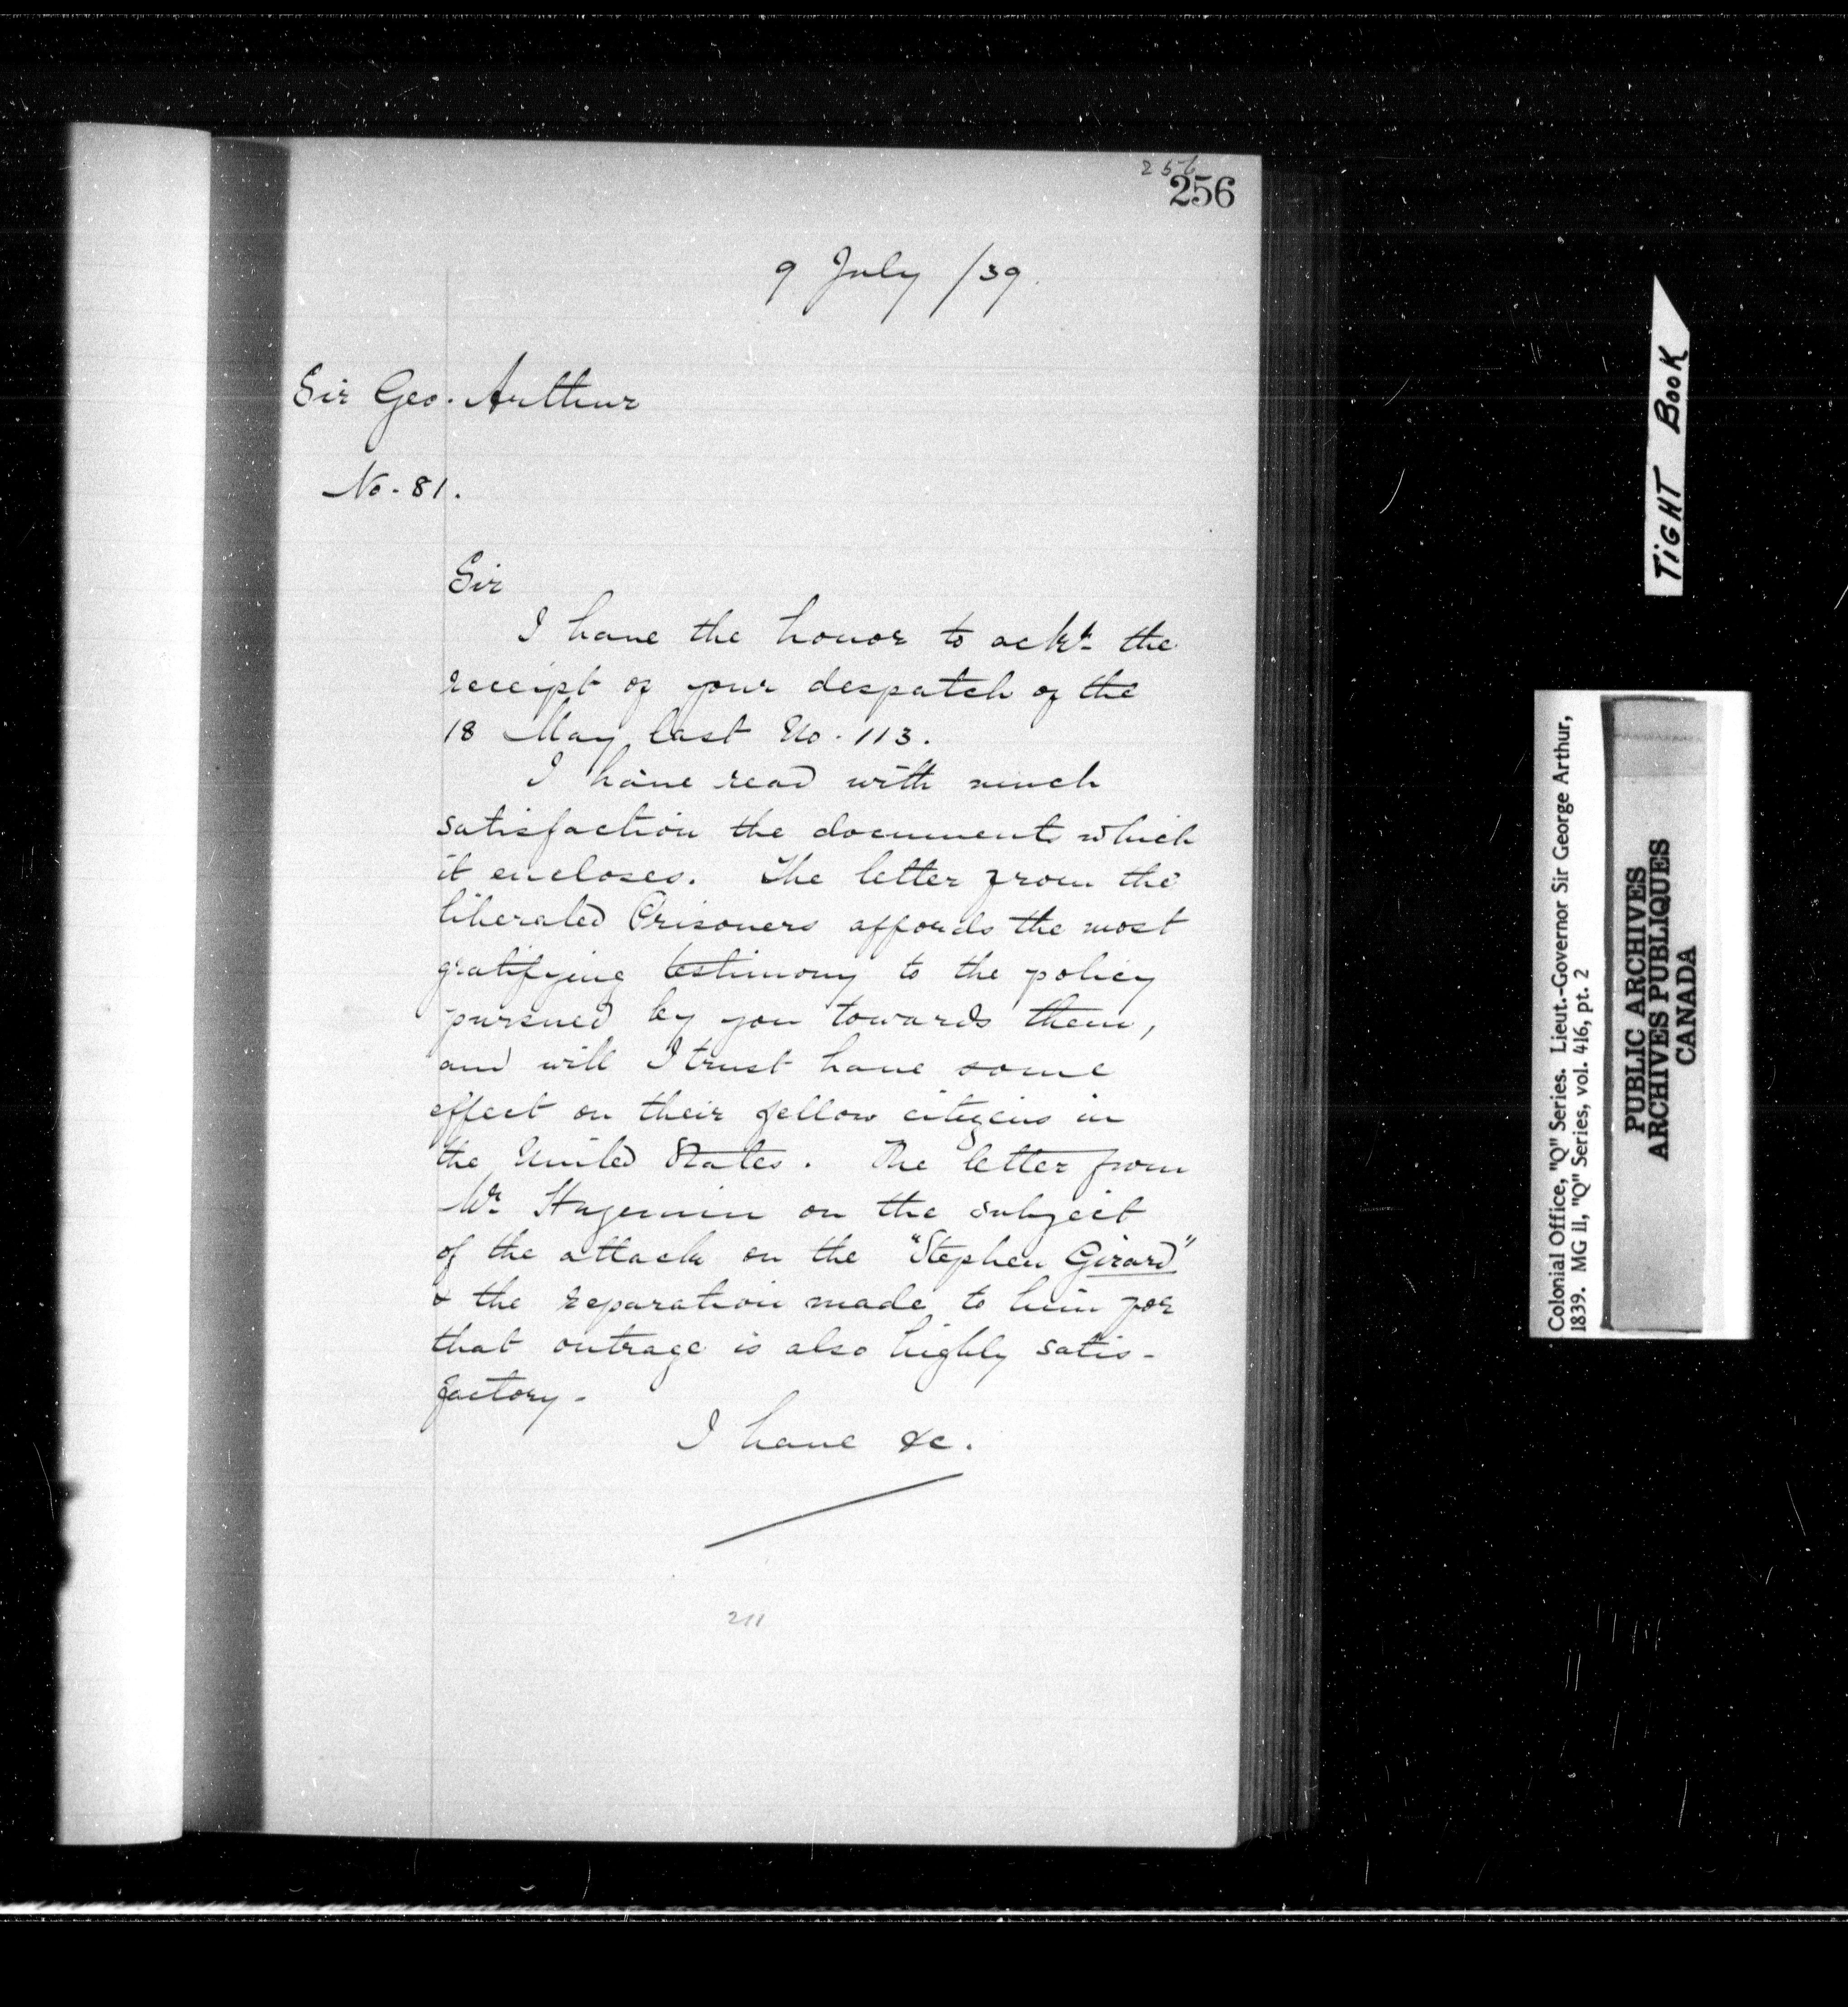 256
256
9 July /39.
Sir Geo. Arthur
No. 81.
Sir
I have the honor to ackr the
receipt of your despatch of the
18 May last No. 113.
I have read with much
satisfaction the documents which
it encloses. The letter from the
liberated Prisoners affords the most
gratifying testimony to the policy
pursued by you towards them,
and will I trust have some
effect on their fellow citizens in
the United States. The letter from
Mr on the subject
of the attack on the "Stephen Girard"
& the reparation made to him for
that outrage is also highly satis-
factory.
I have &c.
211
TIGHT BOOK
Colonial Office, "Q" Series. Lieut.-Governor Sir George Arthur,
1839. MG 11, "Q" Series, vol. 416, pt. 2
PUBLIC ARCHIVES
ARCHIVES PUBLIQUES
CANADA